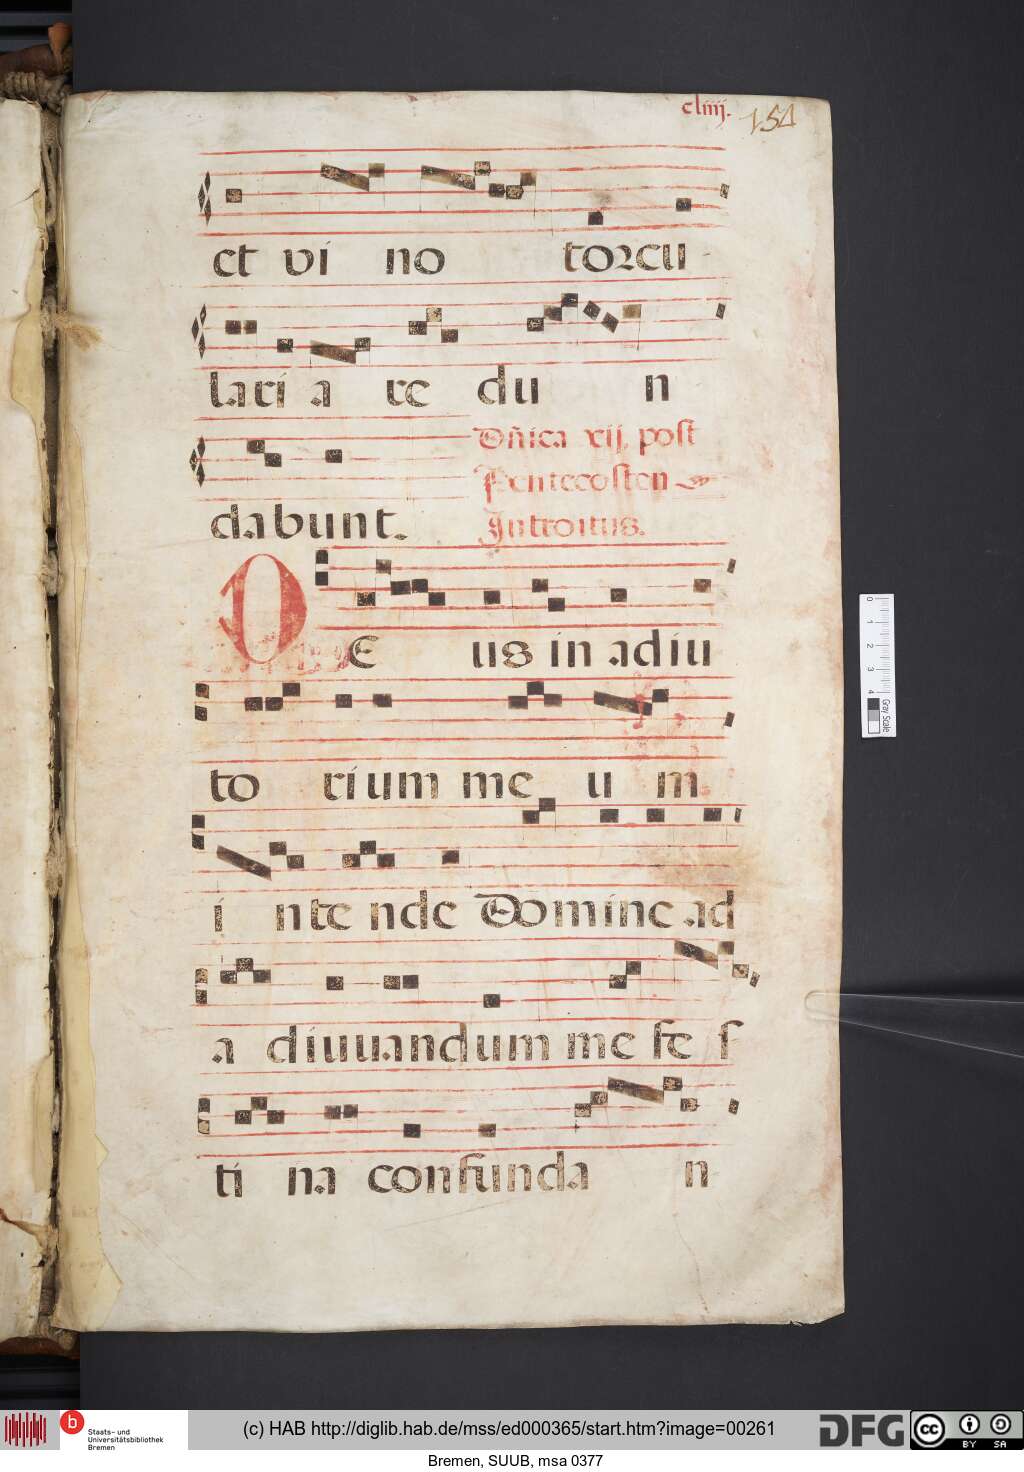 cliiij.
154
et vi no torcu
lari a re du n
dabunt. Dñica xij. post
Pentecosten
Introitus.
DE us in adiu
to rium me u m
i nte nde Domine ad
a diuuandum me fe s
ti na confunda n
0 1 2 3 4
Gray Scale
b Staats- und
Universitätsbibliothek
Bremen
(c) HAB http://diglib.hab.de/mss/ed000365/start.htm?image=00261
DFG
cc BY SA
Bremen, SUUB, msa 0377